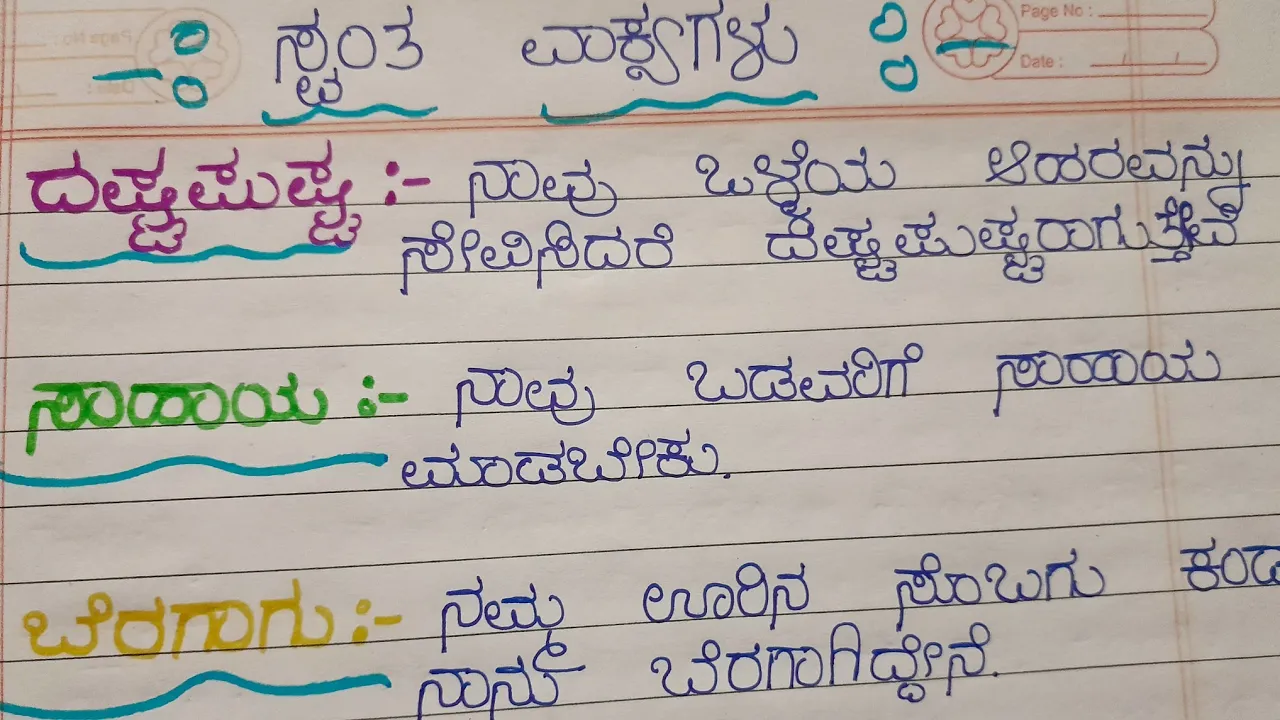 -: ಸ್ವಂತ ವಾಕ್ಯಗಳು :-
Page No :
Date : / /
ದಷ್ಟಪುಷ್ಟ :- ನಾವು ಒಳ್ಳೆಯ ಆಹರವನ್ನು
ಸೇವಿಸಿದರೆ ದಷ್ಟಪುಷ್ಟರಾಗುತ್ತೇವೆ
ಸಾಹಾಯ :- ನಾವು ಬಡವರಿಗೆ ಸಾಹಾಯ
ಮಾಡಬೇಕು.
ಬೆರಗಾಗು :- ನಮ್ಮ ಊರಿನ ಸೊಬಗು ಕಂಡ
ನಾನು ಬೆರಗಾಗಿದ್ದೇನೆ.